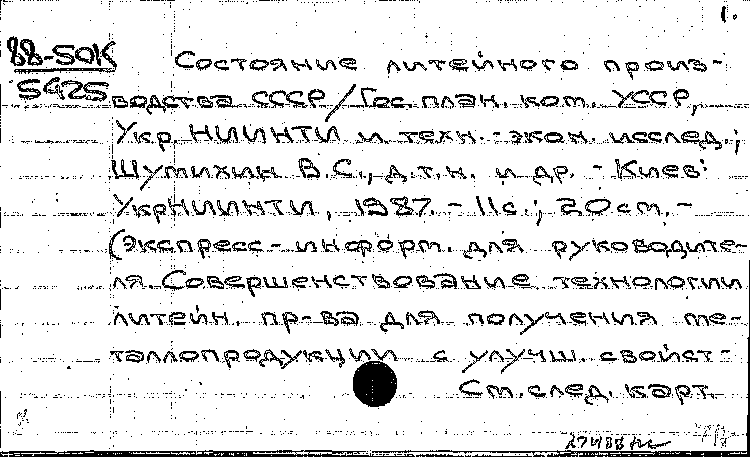 1.
88-50K
5425
Состояние литейного произ-
водства СССР/Гос. план. ком. УССР,
Укр. НИИНТИ и техн.-экон. исслед.;
Шутихин В.С., д.т.н. и др. - Киев:
УкрНИИНТИ, 1987. - 11с.; 20 см. -
(Экспресс-информ. для руководите-
ля. Совершенствование технологии
литейн. пр-ва для получения ме-
таллопродукции с улучш. свойст-
См. след. карт.